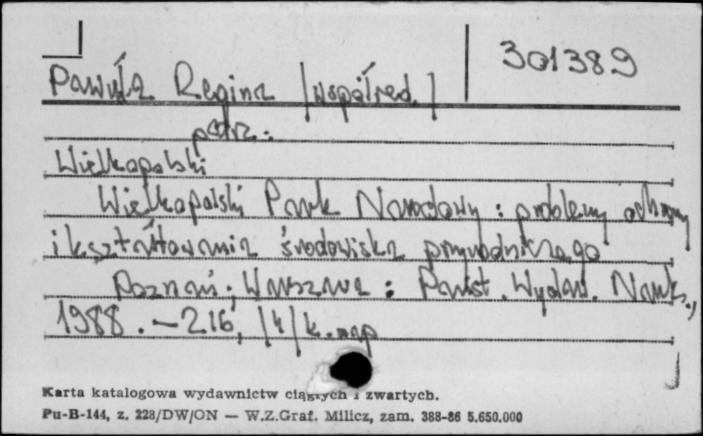 301389
Pawuła Regina /współred./
patrz:
Wielkopolski
Wielkopolski Park Narodowy : problemy ochrony
i kształtowania środowiska przyrodniczego
Poznań; Warszawa : Państ. Wydaw. Nauk.,
1988. – 216, /4/ k. map
Karta katalogowa wydawnictw ciągłych i zwartych.
Pu-B-144, z. 228/DW/ON — W.Z.Graf. Milicz, zam. 388-86 5.650.000